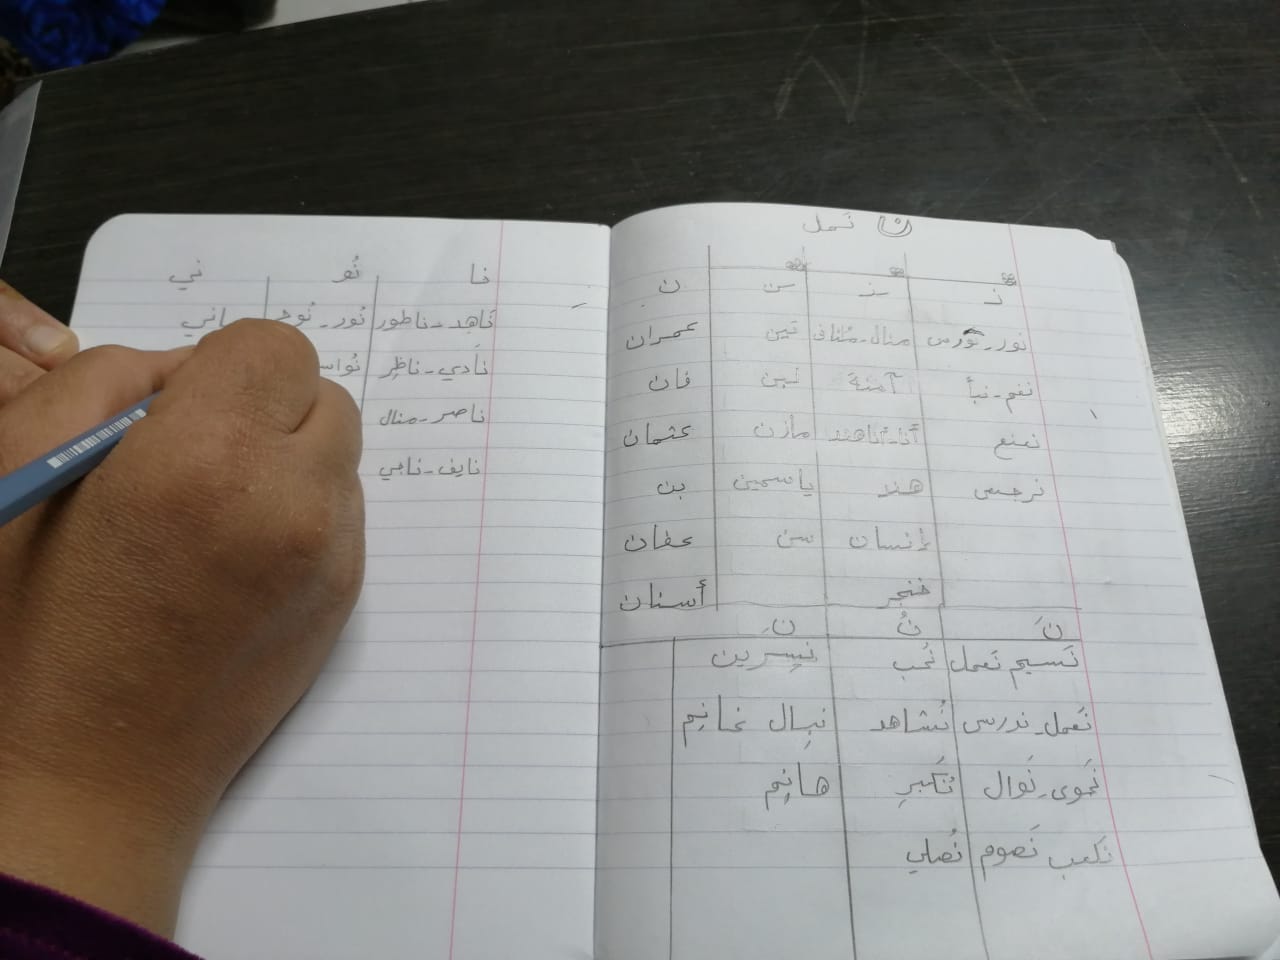 ن نمل
نـ ـنـ ـن ن
نور - نورس منال - مُنافي تين عمران
نغم - نبأ آمنة لبن فان
نعنع أنا - أناهند مازن عثمان
نرجس هند ياسمين بن
إنسان سن عفان
خنجر أسنان
نَ نُ نِ
نَسيم نَعمل نُحب نِسرين
نَعمل - ندرس نُشاهد نِبال غانِم
نَجوى - نَوال نُكَبرِ هانِم
نَلعب نَصوم نُصلي
نا نُو ني
نَاهِد - ناطور نُور - نُوحـ
نَادي - ناظِر نُواسـ
ناصر - منال
نايف - ناجي